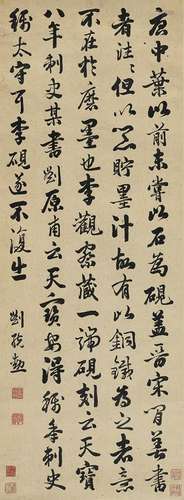 唐中葉以前未嘗以石為硯蓋晉宋間善書
者往往但以器貯墨汁故有以銅鐵為之者意
不在於磨墨也李觀察藏一端硯刻云天寶
八年刺史某書劉原甫云天寶安得稱年刺史
稱太守耳李硯遂不復出
劉統勳